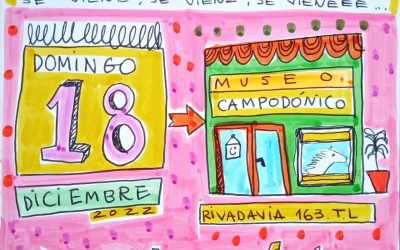 SE VIENE, SE VIENE, SE VIENEEE...
DOMINGO
18
DICIEMBRE
2022
MUSEO
CAMPODÓNICO
RIVADAVIA 163. TL